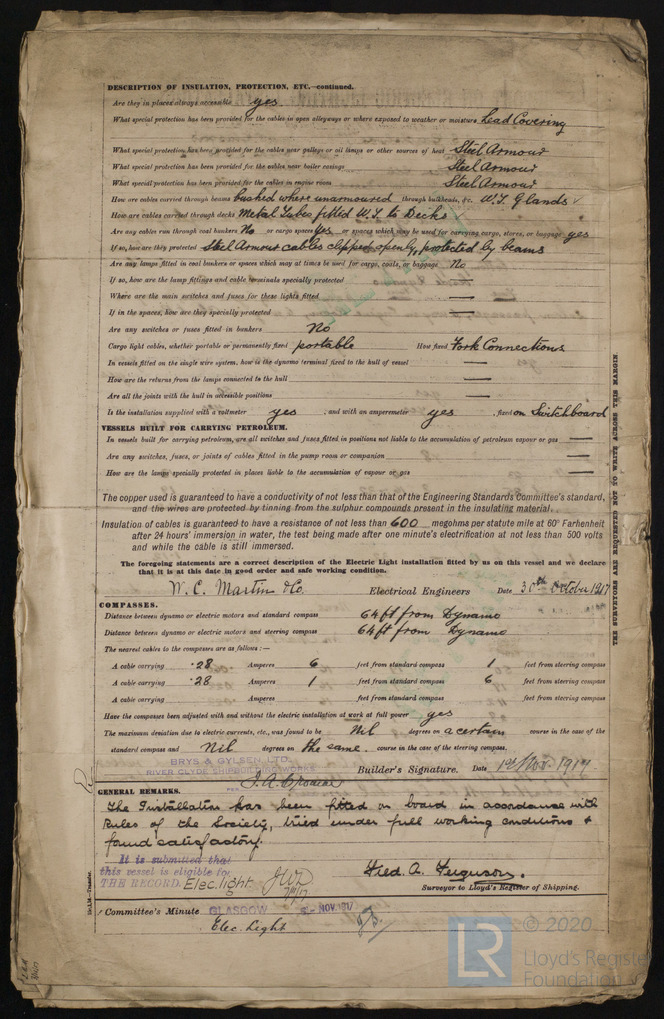 DESCRIPTION OF INSULATION, PROTECTION, ETC.—continued.
Are they in places always accessible yes
What special protection has been provided for the cables in open alleyways or where exposed to weather or moisture Lead Covering
What special protection has been provided for the cables near galleys or oil lamps or other sources of heat Steel Armour
What special protection has been provided for the cables near boiler casings Steel Armour
What special protection has been provided for the cables in engine room Steel Armour
How are cables carried through beams bushed where unarmoured through bulkheads, &c. W.T. Glands
How are cables carried through decks Metal Tubes fitted W.T. to Decks
Are any cables run through coal bunkers No or cargo spaces yes or spaces which may be used for carrying cargo, stores, or baggage yes
If so, how are they protected Steel Armour cables clipped openly, protected by beams
Are any lamps fitted in coal bunkers or spaces which may at times be used for cargo, coals, or baggage No
If so, how are the lamp fittings and cable terminals specially protected —
Where are the main switches and fuses for these lights fitted —
If in the spaces, how are they specially protected —
Are any switches or fuses fitted in bunkers No
Cargo light cables, whether portable or permanently fixed portable How fixed Fork Connections
In vessels fitted on the single wire system, how is the dynamo terminal fixed to the hull of vessel —
How are the returns from the lamps connected to the hull —
Are all the joints with the hull in accessible positions —
Is the installation supplied with a voltmeter yes, and with an amperemeter yes, fixed on Switchboard
VESSELS BUILT FOR CARRYING PETROLEUM.
In vessels built for carrying petroleum, are all switches and fuses fitted in positions not liable to the accumulation of petroleum vapour or gas —
Are any switches, fuses, or joints of cables fitted in the pump room or companion —
How are the lamps specially protected in places liable to the accumulation of vapour or gas —
The copper used is guaranteed to have a conductivity of not less than that of the Engineering Standards Committee's standard,
and the wires are protected by tinning from the sulphur compounds present in the insulating material.
Insulation of cables is guaranteed to have a resistance of not less than 600 megohms per statute mile at 60° Farhenheit
after 24 hours' immersion in water, the test being made after one minute's electrification at not less than 500 volts
and while the cable is still immersed.
The foregoing statements are a correct description of the Electric Light installation fitted by us on this vessel and we declare
that it is at this date in good order and safe working condition.
W. C. Martin & Co. Electrical Engineers Date 30th October 1917
COMPASSES.
Distance between dynamo or electric motors and standard compass 64 ft from Dynamo
Distance between dynamo or electric motors and steering compass 64 ft from Dynamo
The nearest cables to the compasses are as follows:—
A cable carrying .28 Amperes 6 feet from standard compass 1 feet from steering compass
A cable carrying .28 Amperes 1 feet from standard compass 6 feet from steering compass
A cable carrying Amperes feet from standard compass feet from steering compass
Have the compasses been adjusted with and without the electric installation at work at full power yes
The maximum deviation due to electric currents, etc., was found to be Nil degrees on a certain course in the case of the
standard compass and Nil degrees on the same course in the case of the steering compass.
BRYS & GYLSEN LTD.
RIVER CLYDE SHIPBUILDING WORKS
PER Builder's Signature. Date 1st Nov. 1917
GENERAL REMARKS.
The Installation has been fitted on board in accordance with
Rules of the Society, tried under full working conditions &
found satisfactory.
It is submitted that
this vessel is eligible for
THE RECORD. Elec. light
Fred. A. Ferguson.
Surveyor to Lloyd's Register of Shipping.
Committee's Minute GLASGOW NOV. 1917
Elec. Light
THE SURVEYORS ARE REQUESTED NOT TO WRITE ACROSS THIS MARGIN.
LR © 2020
Lloyd's Register
Foundation